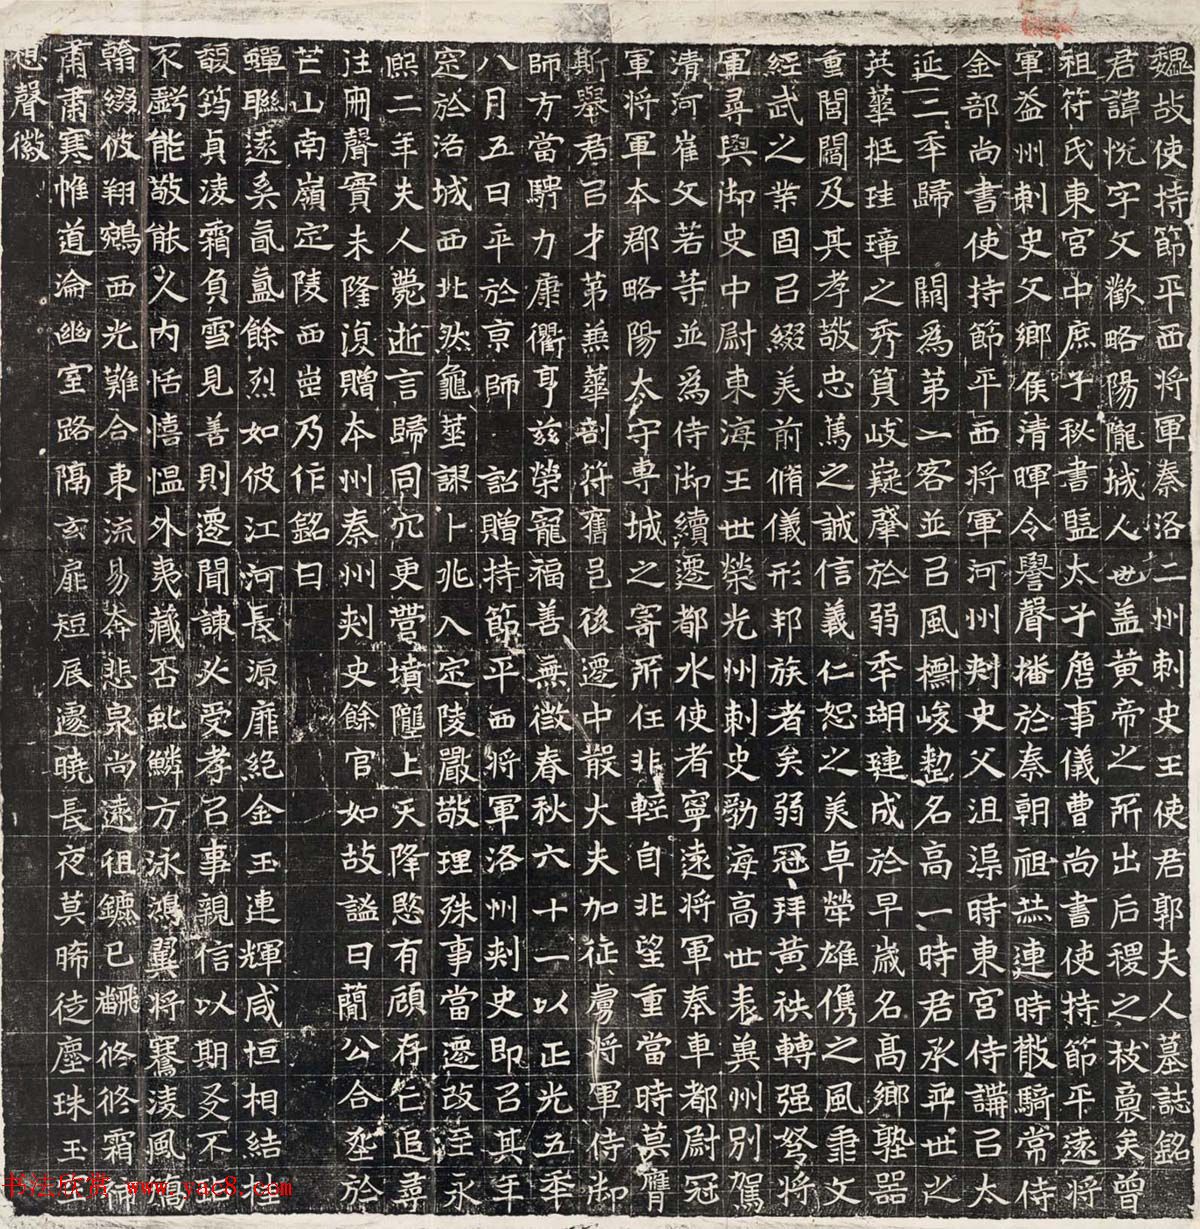 魏故使持節平西將軍秦洛二州刺史王使君郭夫人墓誌銘
君諱悅字文歡略陽隴城人也蓋黃帝之所出后稷之秡裊矣曾
祖符氏東宮中庶子秘書監太子詹事儀曹尚書使持節平遠將
軍益州刺史父鄉侯清暉令譽聲播於秦朝祖恭連時散騎常侍
金部尚書使持節平西將軍河州刾史父沮渠時東宮侍講已太
延二秊歸　闕為第一客並㠯風檦峻整名高一時君承弈世之
英華挺珪璋之秀質岐嶷肇於弱秊瑚璉成於早歲名高鄉塾器
重閭閻及其孝敬忠篤之誠信義仁恕之美卓犖雄儁之風肅文
經武之業固㠯綴美前脩儀形邦族者矣弱冠拜黃袟轉强弩將
軍尋與御史中尉東海王世榮光州刺史勃海高世表冀州別駕
清河崔文若等並為侍御續遷都水使者寧遠將軍奉車都尉冠
軍將軍本郡略陽太守專城之寄所任非輕自非望重當時莫膺
斯舉君㠯才第兼華剖符舊邑後遷中散大夫加征虜將軍侍御
師方當騁力康衢亨茲榮寵福善無徵春秋六十一以正光五秊
八月五日卒於京師　詔贈持節平西將軍洛州刾史即㠯其年
窆於洛城西北然龜莖謬卜兆入定陵嚴敬理殊事當遷改至永
熙二年夫人薨逝言歸同穴更營墳隴上天降愍有顧存亡追尋
注冊聲實未隆復贈本州秦州刾史餘官如故謚曰蕳公合塟於
芒山南嶺定陵西崗乃作銘曰
蟬聯遠系氤氳餘烈如彼江河長源靡絕金玉連輝咸恒相結
馥筠貞淩霜負雪見善則遷聞諫必受孝㠯事親信以期爻不
不虧能敬能久內恬憘慍外夷藏否虬鱗方泳鴻翼將騫淩風
翰綴彼翔鵷西光難合東流易奔悲泉尚遠徂鑣已飜修修霜
肅肅寒帷道淪幽室路隔玄扉短辰遽曉長夜莫晞徒塵珠玉
想聲徽
书法欣赏 www.yac8.com